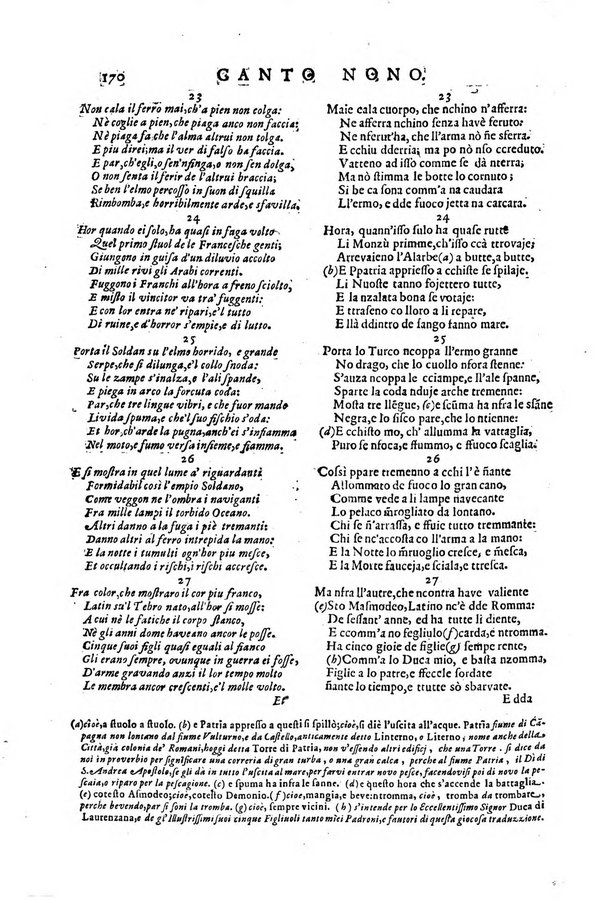 170 CANTO NONO.
23
Non cala il ferro mai, ch'a pien non colga:
Nè coglie a pien, che piaga anco non faccia:
Nè piaga fa, che l'alma altrui non tolga.
E piu direi; ma il ver di falso ha faccia.
E par, ch'egli, o sen'nfinga, o non sen dolga,
O non senta il ferir de l'altrui braccia;
Se ben l'elmo percosso in suon di squilla
Rimbomba, e horribilmente arde, e sfavilla.
24
Hor quando ei solo, ha quasi in fuga volto
Quel primo stuol de le Francesche genti;
Giungono in guisa d'un diluvio accolto
Di mille rivi gli Arabi correnti.
Fuggono i Franchi all'hora a freno sciolto,
E misto il vincitor va tra' fuggenti:
E con lor entra ne' ripari; e'l tutto
Di ruine, e d'horror s'empie, e di lutto.
25
Porta il Soldan su l'elmo horrido, e grande
Serpe, che si dilunga, e'l collo snoda:
Su le zampe s'inalza, e l'ali spande,
E piega in arco la forcuta coda:
Par, che tre lingue vibri, e che fuor mando
Livida spuma; e che'l suo fischio s'oda:
Et hor, ch'arde la pugna, anch'ei s'infiamma
Nel moto, e fumo versa insieme, e fiamma.
26
E si mostra in quel lume a' riguardanti
Formidabil così l'empio Soldano,
Come veggon ne l'ombra i naviganti
Fra mille lampi il torbido Oceano.
Altri danno a la fuga i piè tremanti:
Danno altri al ferro intrepida la mano:
E la notte i tumulti ogn'hor piu mesce,
Et occultando i rischi, i rischi accresce.
27
Fra color, che mostraro il cor piu franco,
Latin su'l Tebro nato, all'hor si mosse:
A cui nè le fatiche il corpo stanco,
Nè gli anni dome haveano ancor le posse.
Cinque suoi figli quasi eguali al fianco
Gli erano sempre, ovunque in guerra ei fosse,
D'arme gravando anzi il lor tempo molto
Le membra ancor crescenti, e'l molle volto.
Et
23
Maie cala cuorpo, che nchino n'afferra:
Ne afferra nchino senza havè feruto:
Ne nferut'ha, che ll'arma nò ñe sferra.
E cchiu dderria; ma po nò nso ccreduto.
Vatteno ad isso comme se dà nterra;
Ma nò stimma le botte lo cornuto;
Si be ca sona comm'a na caudara
Ll'ermo, e dde fuoco jetta na carcara.
24
Hora, quann'isso sulo ha quase rutte
Li Monzù primme, ch'isso ccà ttrovaje;
Atrevaieno l'Alarbe(a) a butte, a butte,
(b)E Ppatria appriesso a cchiste se spilaje.
Li Nuoste tanno fojettero tutte,
E la nzalata bona se votaje:
E ttraseno co lloro a li repare,
E llà ddintro de sango fanno mare.
25
Porta lo Turco ncoppa ll'ermo granne
No drago, che lo cuollo nfora stenne:
S'auza ncoppa le cciampe, e ll'ale spanne,
Sparte la coda nduje arche tremenne:
Mosta tre llẽgue, (c)e scũma ha nfra le sãne
Negra, e lo fisco pare, che lo ntienne:
(d)E cchisto mo, ch'allumma la vattaglia,
Puro se nfoca, e ffummo, e ffuoco scaglia.
26
Cossì ppare tremenno a cchi ll'è ñante
Atlommato de fuoco lo gran cano,
Comme vede a li lampe navecante
Lo pelaco m̃rogliato da lontano.
Chi se ñ'arrassa, e ffuie tutto tremmante:
Chi se nc'accosta co ll'arma a la mano:
E la Notte lo m̃ruoglio cresce, e m̃esca,
E la Morte fauceja, e sciala, e ttresca.
27
Ma nfra ll'autre, che ncontra have valiente
(e)Sto Masmodeo, Latino nc'è dde Romma:
De sessant'anne, ed ha tutte li diente,
E ccomm'a no fegliulo(f) carda, e ntromma.
Ha cinco gioie de figlie(g) sempe rente,
(h)Comma o Duca mio, e basta nzomma,
Figlie a lo patre, e ffecele sordate
ñante lo tiempo, e ttutte sò sbarvate.
E dda
(a) cioè, a stuolo a stuolo. (b) e Patria appresso a questi si spillò; cioè, si diè l'uscita all'acque. Patria fiume di Cãpagna non lontano dal fiume Vulturno, e da Castello, anticamente detto Linterno, o Literno; nome anco della
Città, già colonia de' Romani, hoggi detta Torre di Patria, non v'essendo altri edificj, che una Torre. Si dice da
noi in proverbio per significare una correria di gran turba, o una gran calca, perche al fiume Patria, il Dì di
S. Andrea Apostolo, se gli dà in tutto l'uscita al mare, per farvi entrar novo pesce, facendovisi poi di novo la pescaja, o riparo per la pescagione. (c) e spuma ha infra le sanne. (d) e questo hora che s'accende la battaglia.
(e) cotesto Asmodeo; cioè, cotesto Demonio. (f) cioè, mangia, e beve: ntromma, cioè, tromba da trombare,
perche bevendo, par si soni la tromba. (g) cioè, sempre vicini. (h) s'intende per lo Eccellentissimo Signor Duca di
Laurenzana, e de gl'Illustrissimi suoi cinque Figliuoli tanto miei Padroni, e fautori di questa giocosa traduzzione.